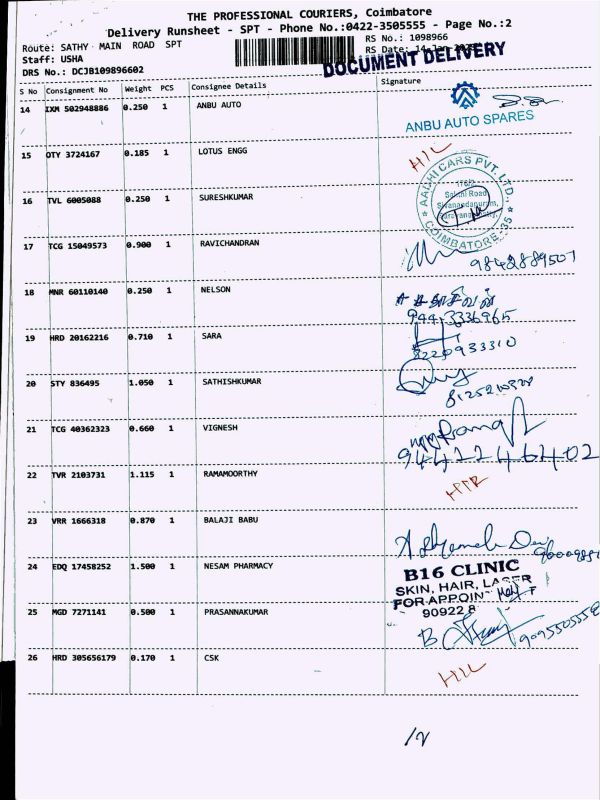 THE PROFESSIONAL COURIERS, Coimbatore
Delivery Runsheet - SPT - Phone No.:0422-3505555 - Page No.:2
Route: SATHY MAIN ROAD SPT
RS No.: 1098966
Staff: USHA
RS Date: 14-Jan-
DRS No.: DCJB109896602
DOCUMENT DELIVERY
S No Consignment No Weight PCS Consignee Details Signature
14 IXM 502948886 0.250 1 ANBU AUTO
ANBU AUTO SPARES
15 OTY 3724167 0.185 1 LOTUS ENGG
HIL
AADHI CARS PVT. LTD.,
Sathi Road
Sivanandapuram,
COIMBATORE-35
16 TVL 6005088 0.250 1 SURESHKUMAR
17 TCG 15049573 0.900 1 RAVICHANDRAN
9842889507
18 MNR 60110140 0.250 1 NELSON
944 3336965
19 HRD 20162216 0.710 1 SARA
8220933310
20 STY 836495 1.050 1 SATHISHKUMAR
21 TCG 40362323 0.660 1 VIGNESH
22 TVR 2103731 1.115 1 RAMAMOORTHY
23 VRR 1666318 0.870 1 BALAJI BABU
24 EDQ 17458252 1.500 1 NESAM PHARMACY
B16 CLINIC
SKIN, HAIR, LASER
FOR APPOIN
90922 8
25 MGD 7271141 0.500 1 PRASANNAKUMAR
9095505558
26 HRD 305656179 0.170 1 CSK
HIL